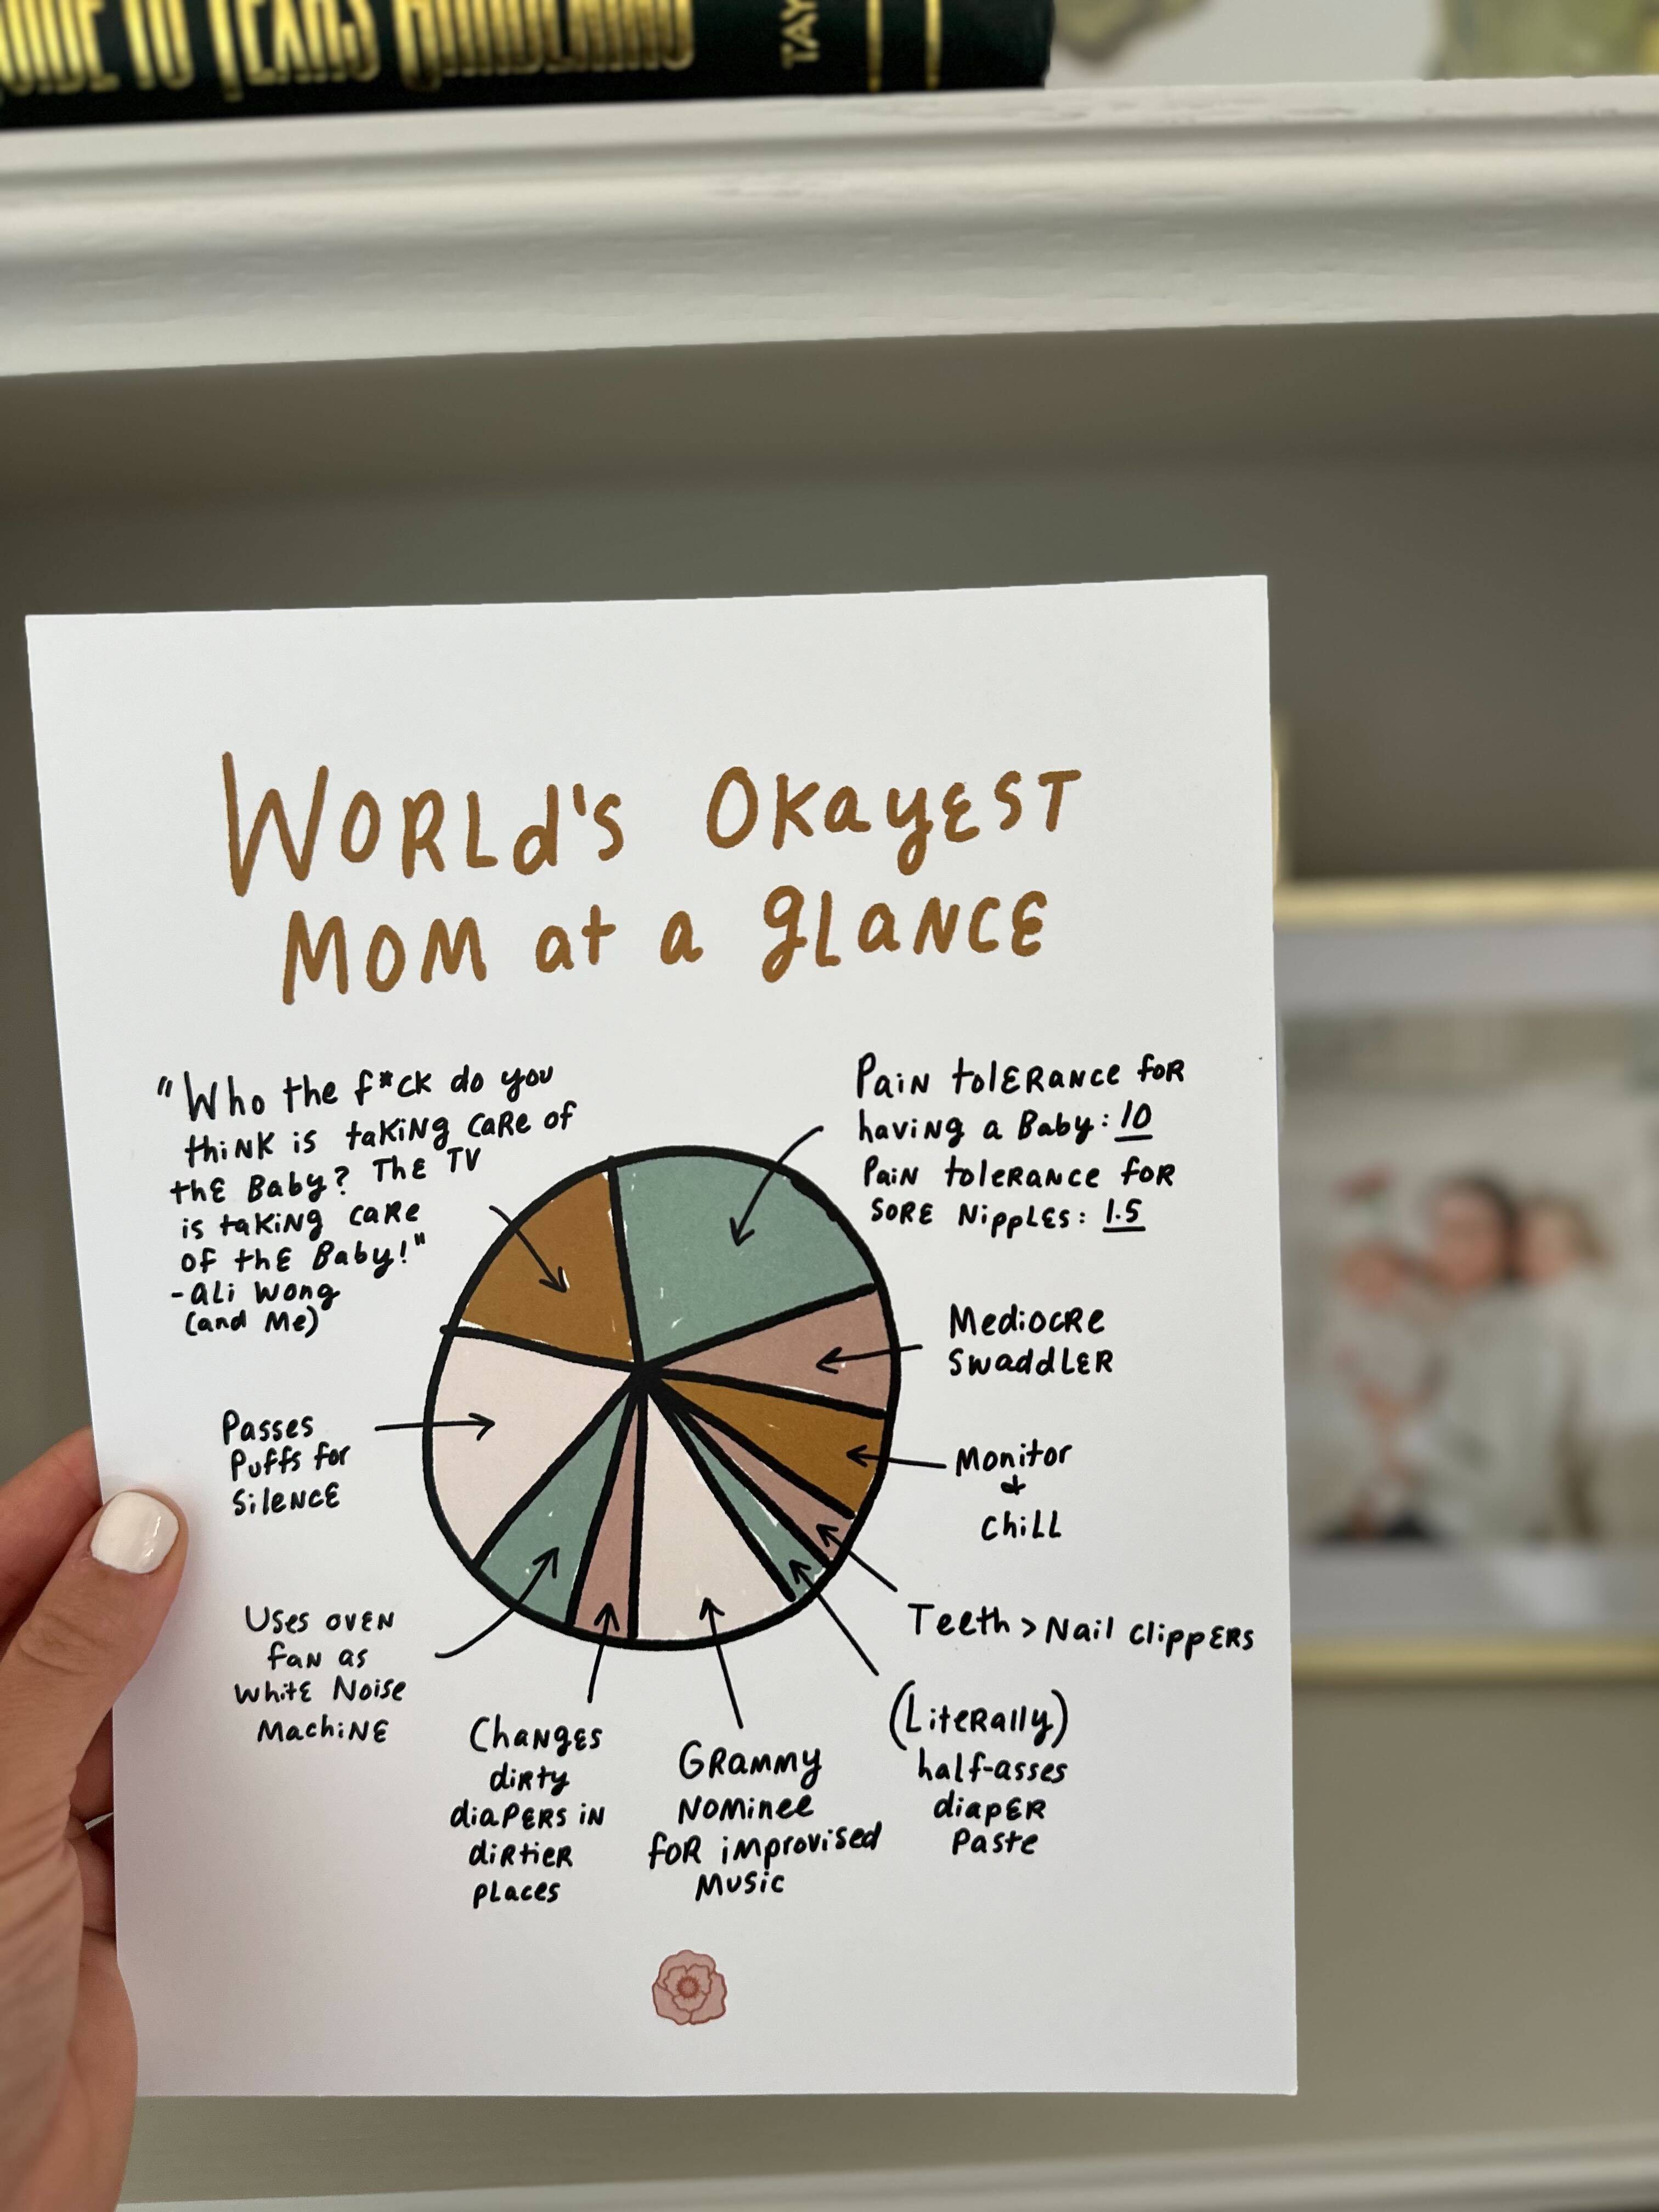 GUIDE TO TEXAS GARDENING
TAY
WORLd's OKayEST
MOM at a gLaNCE
"Who the f*ck do you
thiNK is taKiNg CaRe of
thE Baby? ThE TV
is taKiNg CaRe
of thE Baby!"
- ali Wong
(and Me)
PaiN tolERaNce foR
haviNg a Baby: 10
PaiN tolERaNce foR
SORE NippLEs: 1.5
MediocRe
SwaddLER
Monitor
&
ChiLL
Teeth > Nail clippERs
(LiteRally)
half-asses
diapER
Paste
GRammy
Nominee
foR improvised
Music
ChaNgEs
diRty
diaPERs iN
diRtieR
pLaces
Uses ovEN
faN as
whitE Noise
MachiNE
Passes
Puffs for
SilENcE